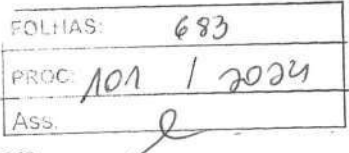 FOLHAS: 683
PROC: 101 / 2024
Ass.